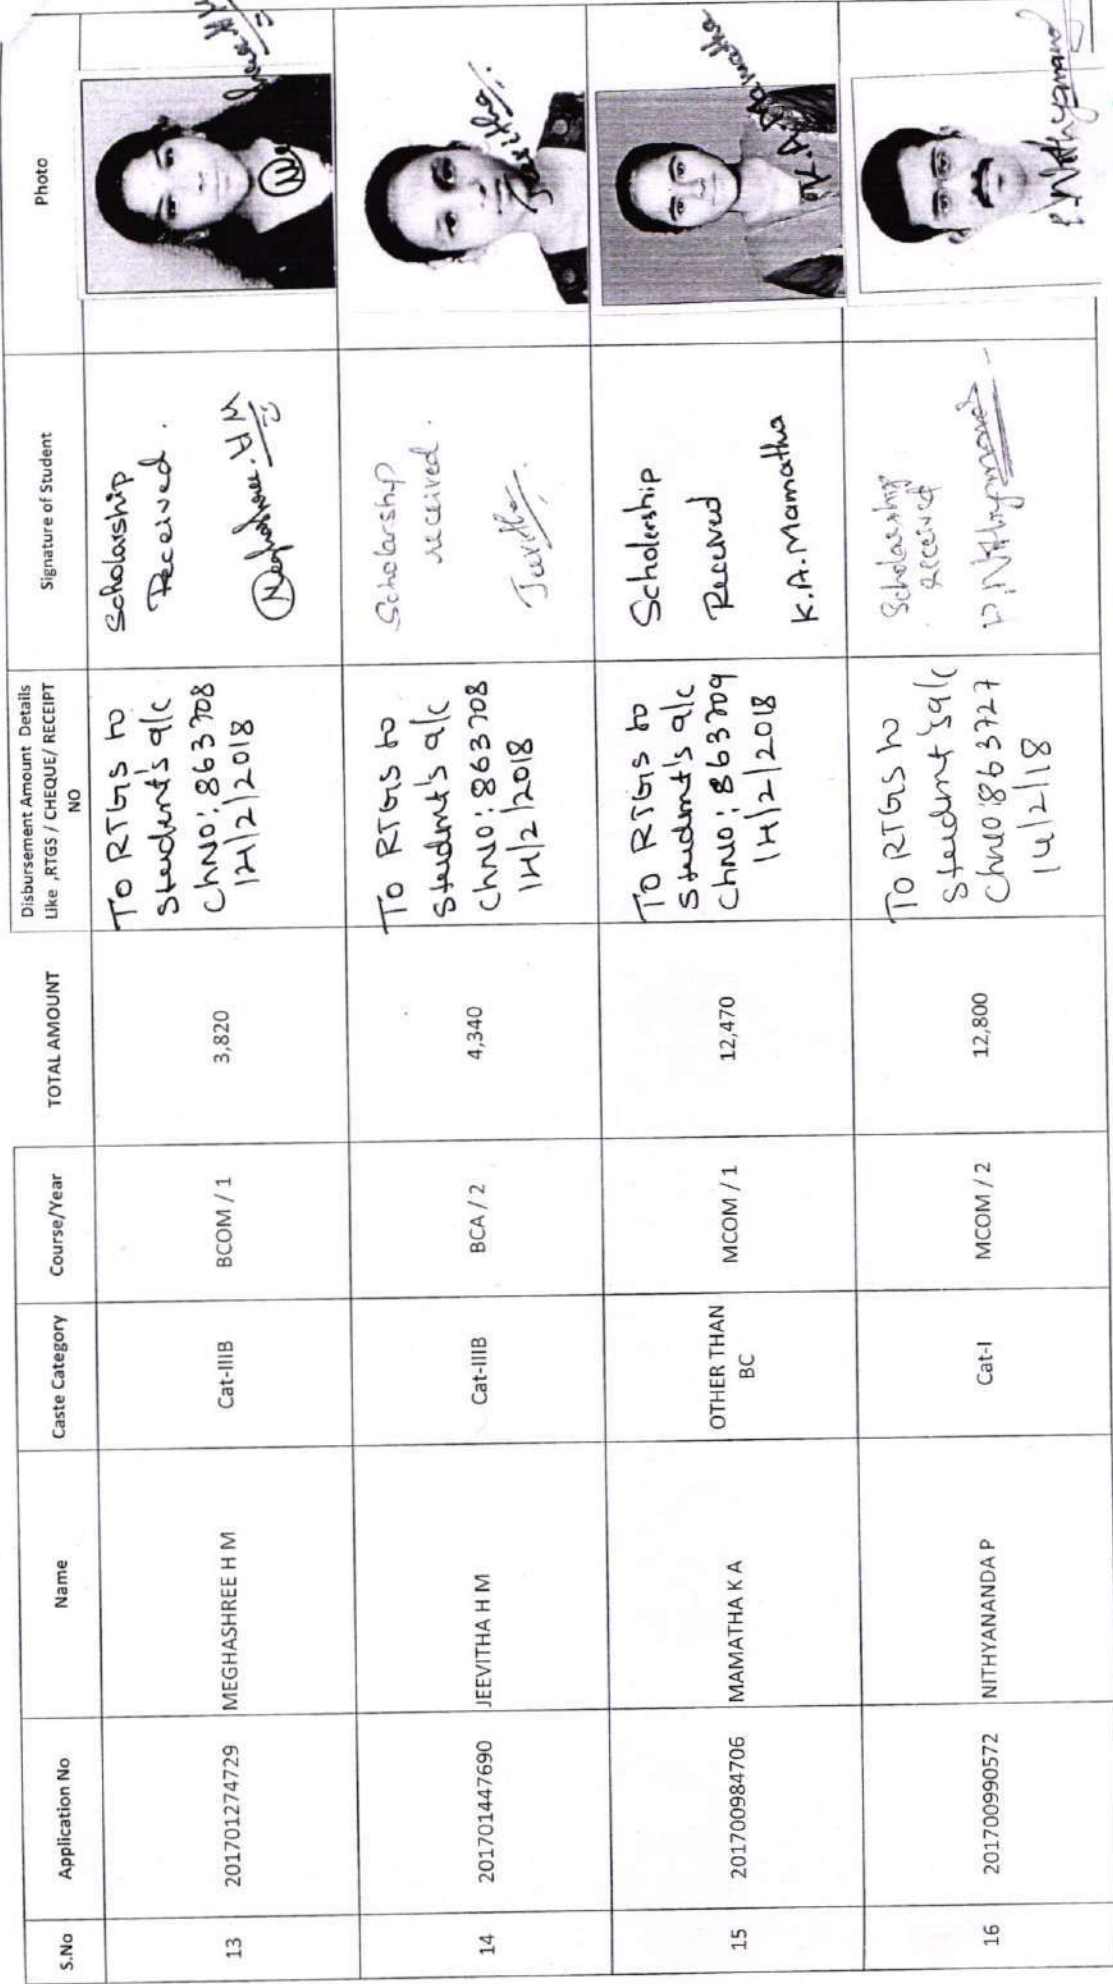 S.No
Application No
Name
Caste Category
Course/Year
TOTAL AMOUNT
Disbursement Amount Details
Like ,RTGS / CHEQUE/ RECEIPT
NO
Signature of Student
Photo
13
201701274729
MEGHASHREE H M
Cat-IIIB
BCOM / 1
3,820
To RTGS to
Student's a/c
ChNO: 863708
14/2/2018
Scholarship
Received .
Meghashree.HM
14
201701447690
JEEVITHA H M
Cat-IIIB
BCA / 2
4,340
To RTGS to
Student's a/c
ChNO: 863708
14/2/2018
Scholarship
received .
Jeevitha
Jeevitha
15
201700984706
MAMATHA K A
OTHER THAN
BC
MCOM / 1
12,470
To RTGS to
Student's a/c
ChNO: 863709
14/2/2018
Scholership
Received
K.A.Mamatha
K.A.Mamatha
16
201700990572
NITHYANANDA P
Cat-I
MCOM / 2
12,800
To RTGS to
Student's a/c
ChNO: 863727
14/2/18
Scholarship
received
P.Nithyanand
P.Nithyanand